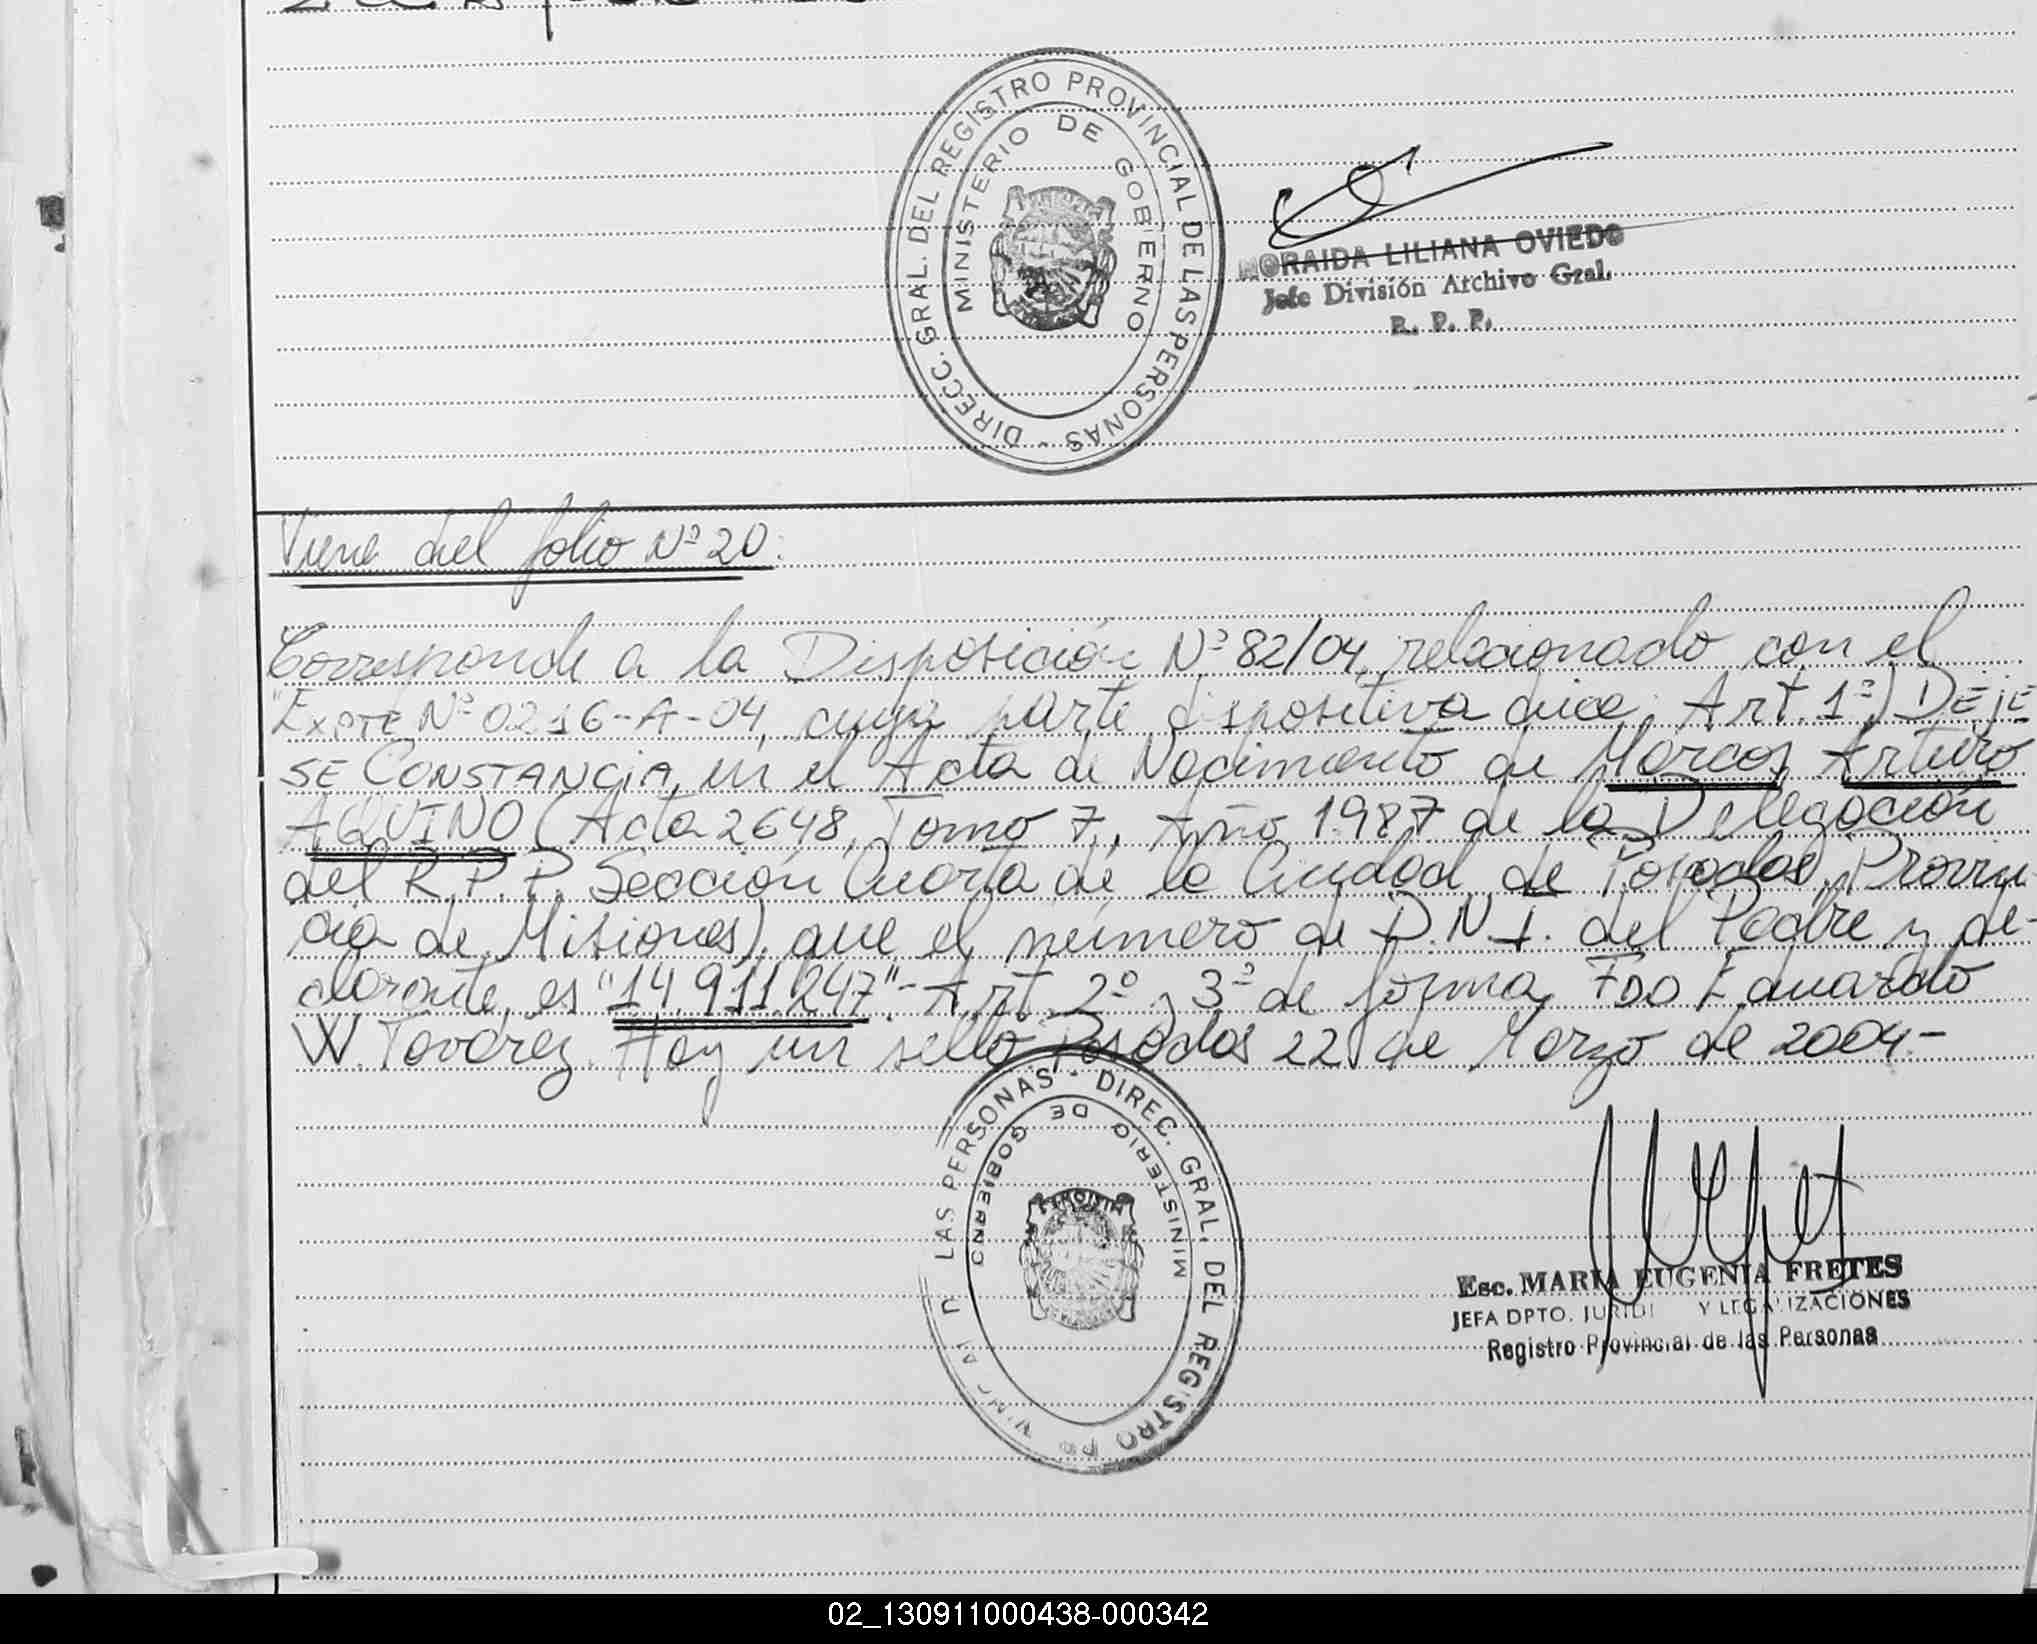 DIRECC. GRAL. DEL REGISTRO PROVINCIAL DE LAS PERSONAS -
MINISTERIO DE GOBIERNO
NORAIDA LILIANA OVIEDO
Jefe División Archivo Gral.
R. P. P.
Viene del folio Nº 20:
Corresponde a la Disposición Nº 82/04, relacionado con el
Expte Nº 0216-A-04, cuya parte dispositiva dice: Art. 1º) DEJE
SE CONSTANCIA, en el Acta de Nacimiento de Marcos Arturo
AQUINO (Acta 2648, Tomo 7, Año 1987 de la Delegación
del R.P.P. Sección Cuarta de la Ciudad de Posadas, Provin-
cia de Misiones), que el número de D.N.I. del Padre y de-
clarante, es "14.911.247".- Art. 2º y 3º de forma, FDO Eduardo
W. Továrez. Hay un sello Posadas 22 de Marzo de 2004.-
LAS PERSONAS - DIREC. GRAL. DEL REGISTRO
MINISTERIO DE GOBIERNO
Esc. MARIA EUGENIA FRETES
JEFA DPTO. JURIDI Y LEGALIZACIONES
Registro Provincial de las Personas
02_130911000438-000342